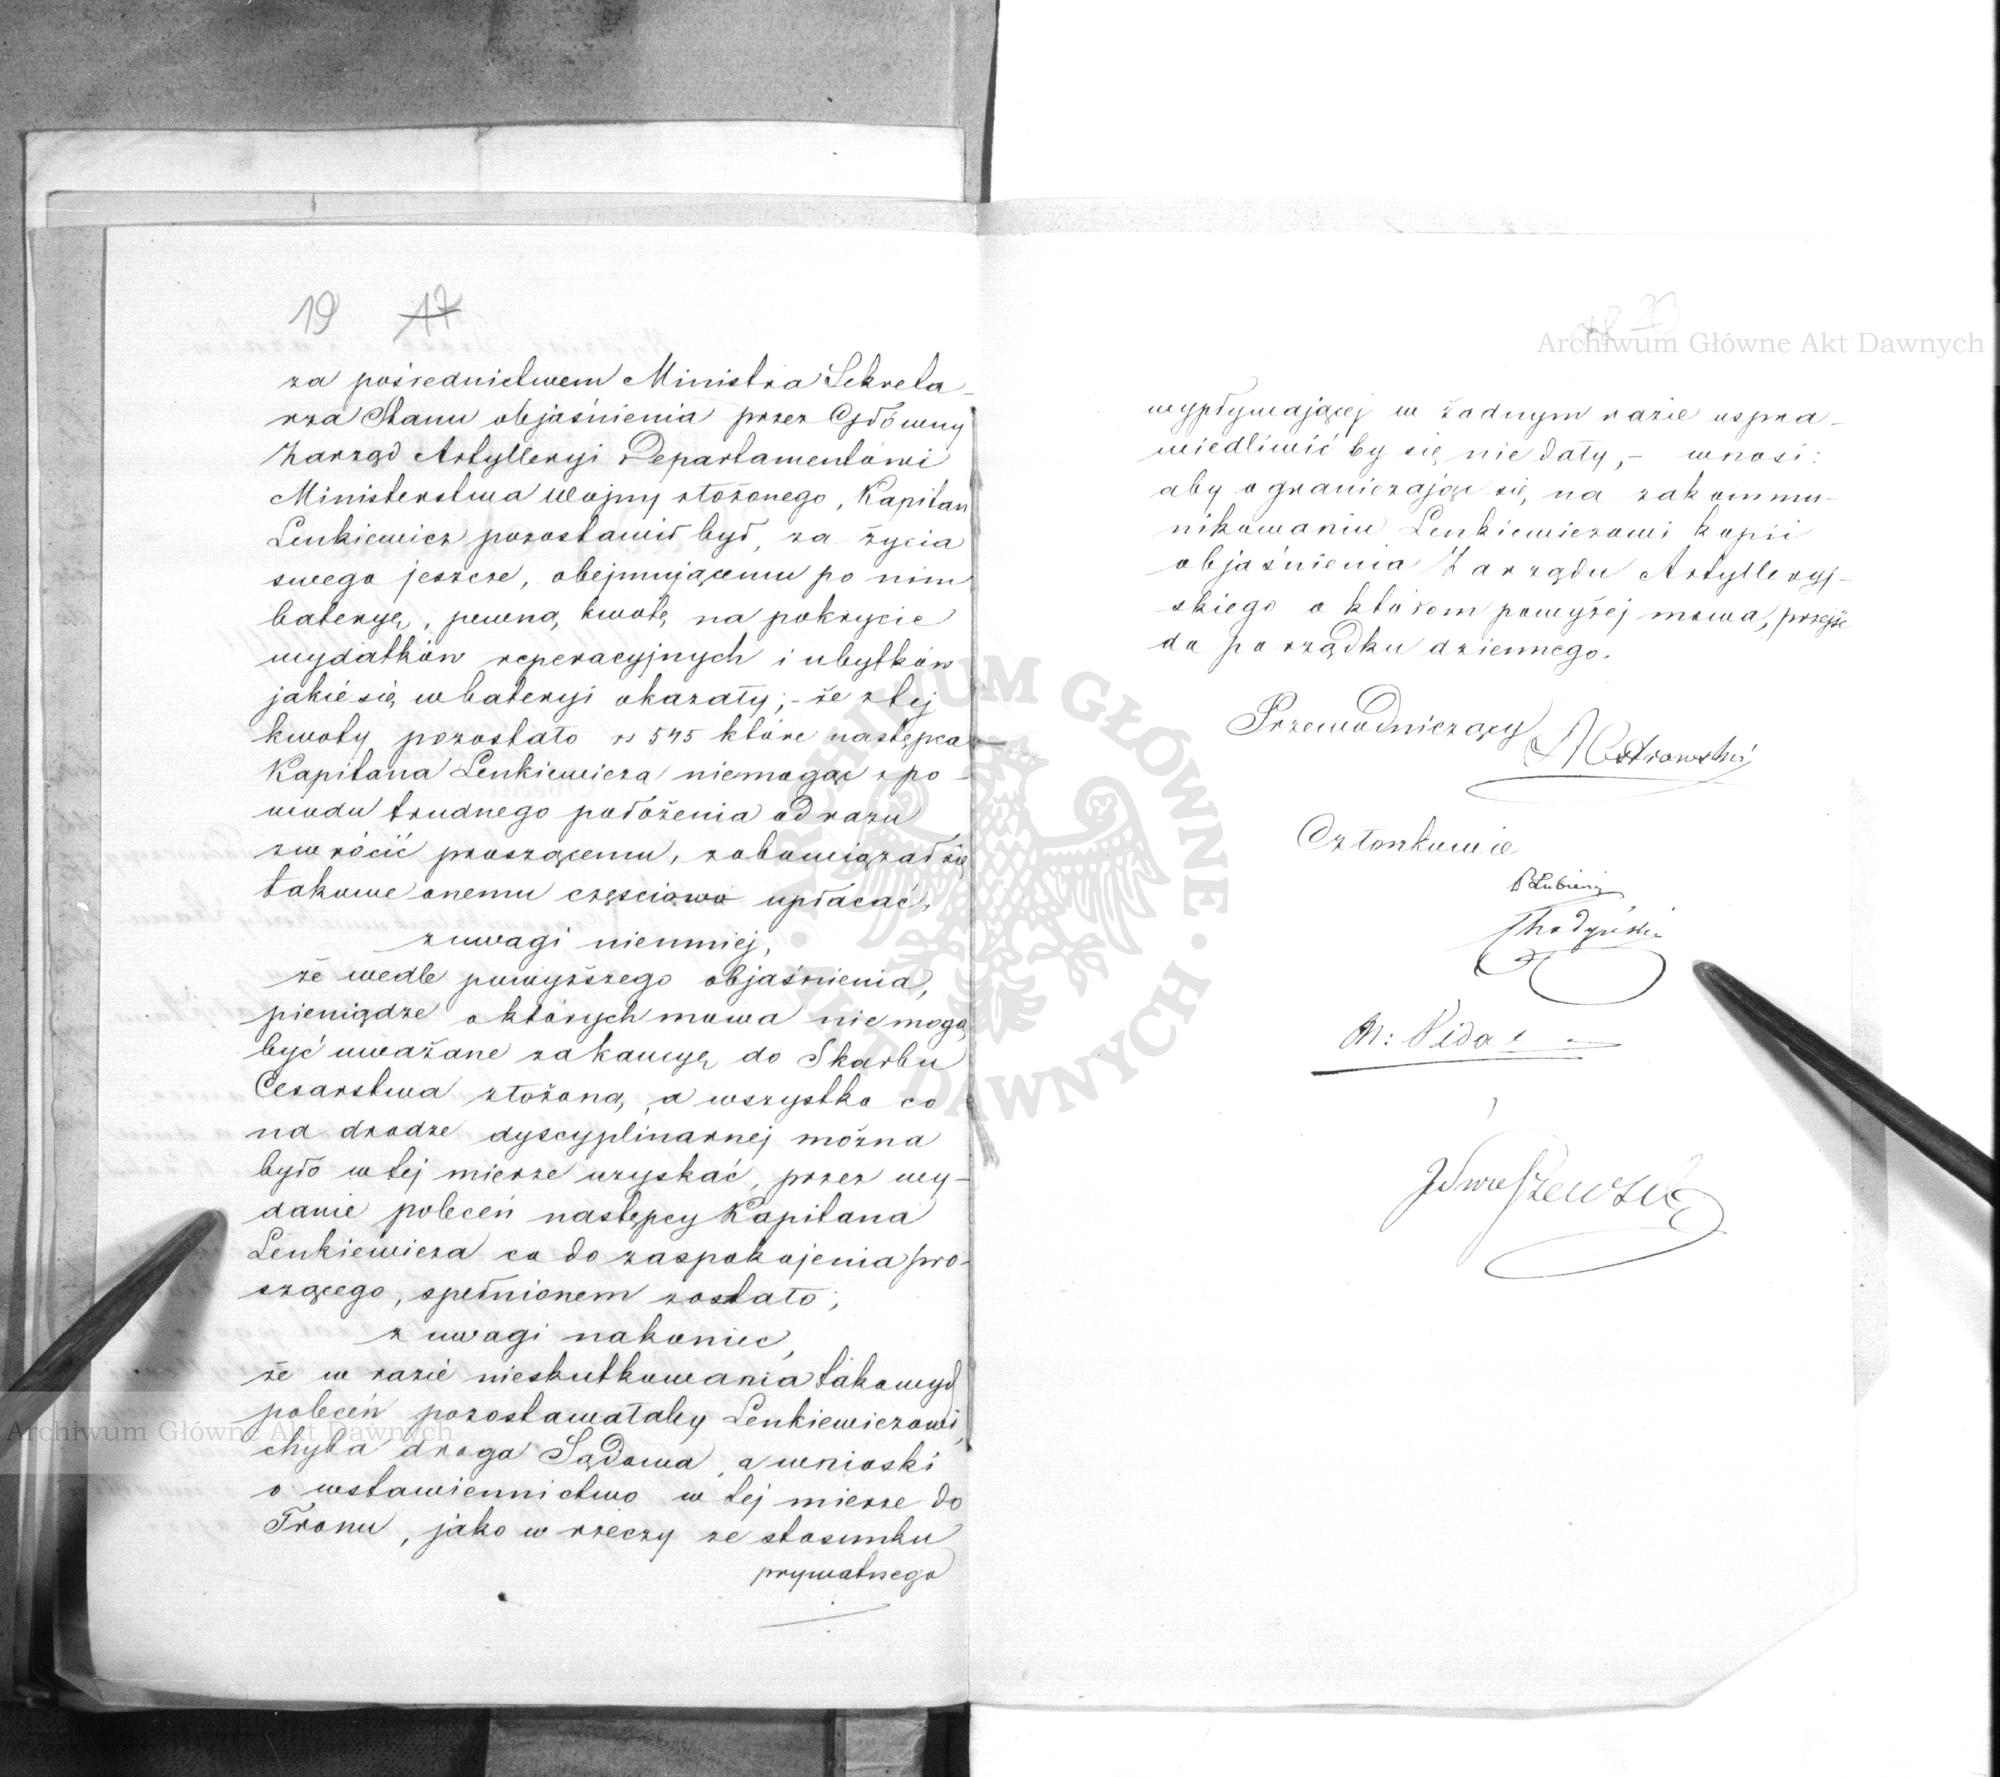 19 17
za pośrednictwem Ministra Sekreta-
rza Stanu objaśnienia przez Główny
Zarząd Artylleryi Departamentowi
Ministerstwa Wojny złożonego, Kapitan
Lenkiewicz pozostawił był, za życia
swego jeszcze, obejmującemu po nim
bateryę, pewną kwotę na pokrycie
wydatków reperacyjnych i ubytków
jakie się w bateryi okazały; – że z tej
kwoty pozostało rs 545 które następca
Kapitana Lenkiewicza niemogąc z po-
wodu trudnego położenia od razu
zwrócić proszącemu, zobowiązał się
takowe onemu częściowo upłacać,
z uwagi niemniej,
że wedle powyższego objaśnienia,
pieniądze o których mowa nie mogą
być uważane za kaucyę do Skarbu
Cesarstwa złożoną, a wszystko co
na drodze dyscyplinarnej można
było w tej mierze uzyskać, przez wy-
danie poleceń następcy Kapitana
Lenkiewicza co do zaspokojenia pro-
szącego, spełnionem zostało;
z uwagi nakoniec,
że w razie nieskutkowania takowych
poleceń pozostawałaby Lenkiewiczowi,
chyba droga Sądowa, a wnioski
o wstawiennictwo w tej mierze do
Tronu, jako w rzeczy ze stosunku
prywatnego
18 20
wypływającej w żadnym razie uspra-
wiedliwić by się nie dały, – wnosi:
aby ograniczając się na zakommu-
nikowaniu Lenkiewiczowi kopii
objaśnienia Zarządu Artylleryj-
skiego o którem powyżej mowa, przejść
do porządku dziennego.
Przewodniczący
A Ostrowski
Członkowie
P Łubieński
Chodyński
M: Vidal
JdwaSzewski
Archiwum Główne Akt Dawnych
ARCHIWUM GŁÓWNE AKT DAWNYCH
Archiwum Główne Akt Dawnych